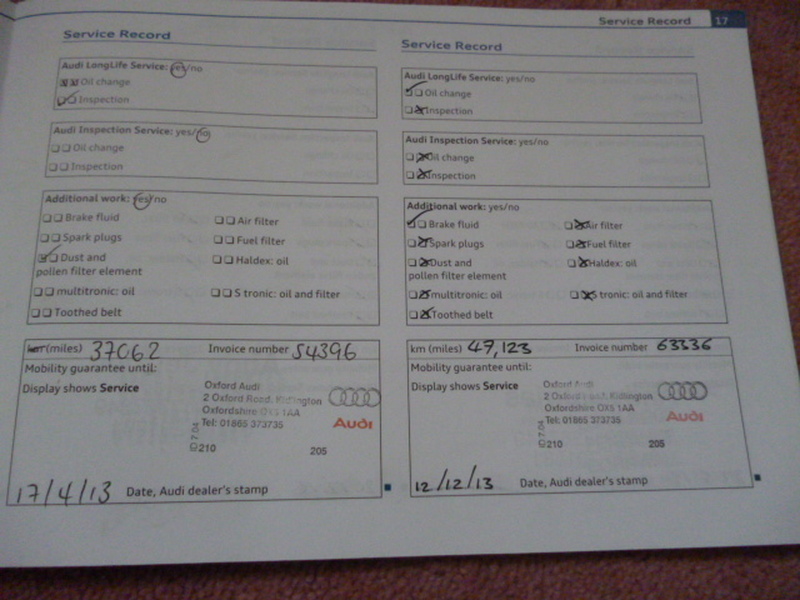 Service Record 17
Service Record
Audi LongLife Service: yes/no
Oil change
Inspection
Audi Inspection Service: yes/no
Oil change
Inspection
Additional work: yes/no
Brake fluid
Air filter
Spark plugs
Fuel filter
Dust and
pollen filter element
Haldex: oil
multitronic: oil
S tronic: oil and filter
Toothed belt
km (miles) 37062 Invoice number 54396
Mobility guarantee until:
Display shows Service
Oxford Audi
2 Oxford Road, Kidlington
Oxfordshire OX5 1AA
Tel: 01865 373735
Audi
210 205
17/4/13 Date, Audi dealer's stamp
Service Record
Audi LongLife Service: yes/no
Oil change
Inspection
Audi Inspection Service: yes/no
Oil change
Inspection
Additional work: yes/no
Brake fluid
Air filter
Spark plugs
Fuel filter
Dust and
pollen filter element
Haldex: oil
multitronic: oil
S tronic: oil and filter
Toothed belt
km (miles) 47,123 Invoice number 63336
Mobility guarantee until:
Display shows Service
Oxford Audi
2 Oxford Road, Kidlington
Oxfordshire OX5 1AA
Tel: 01865 373735
Audi
210 205
12/12/13 Date, Audi dealer's stamp